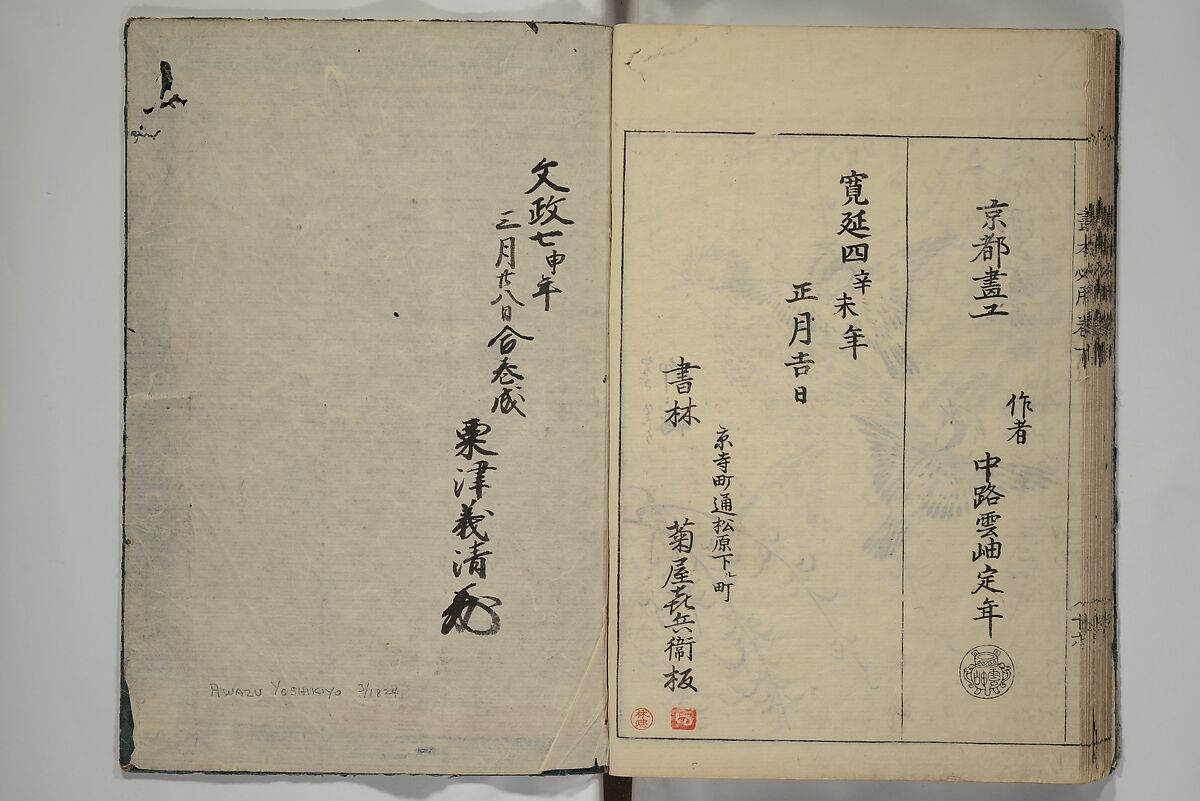 京都畫工
作者
中路雲岫定年
寛延四辛未年
正月吉日
書林
京寺町通松原下ル町
菊屋㐂兵衞板
文政七申年
三月廿八日合巻成
粟津義清
AWAZU YOSHIKIYO 3/1824